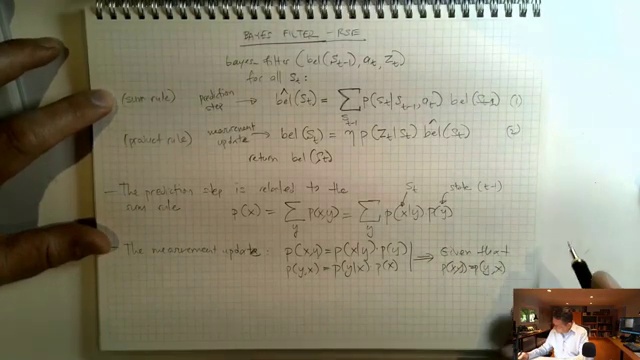 BAYES FILTER - RSE
bayes filter (bel(S_{t-1}), a_t, z_t)
for all S_t:
(sum rule) prediction step → \hat{bel}(S_t) = ∑_{S_{t-1}} p(S_t|S_{t-1}, a_t) bel(S_{t-1}) (1)
(product rule) measurement update → bel(S_t) = η p(z_t|S_t) \hat{bel}(S_t) (2)
return bel(S_t)
- The prediction step is related to the S_t state (t-1)
sum rule p(x) = ∑_y p(x,y) = ∑_y p(x|y) p(y)
- The measurement update: p(x,y) = p(x|y) p(y) ⟹ Given that
p(y,x) = p(y|x) p(x) p(x,y) = p(y,x)